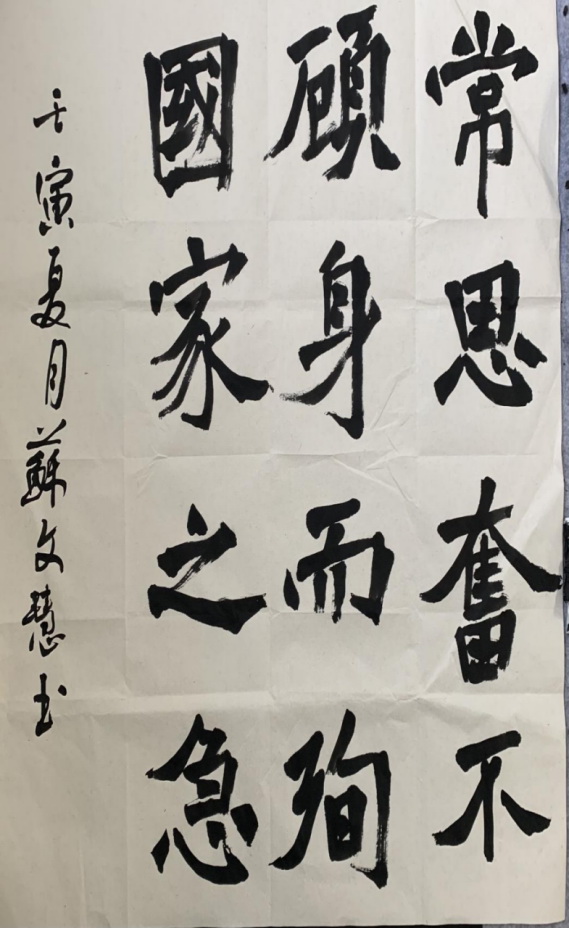 常思奮不
顧身而殉
國家之急
壬寅夏月蘇文慧书